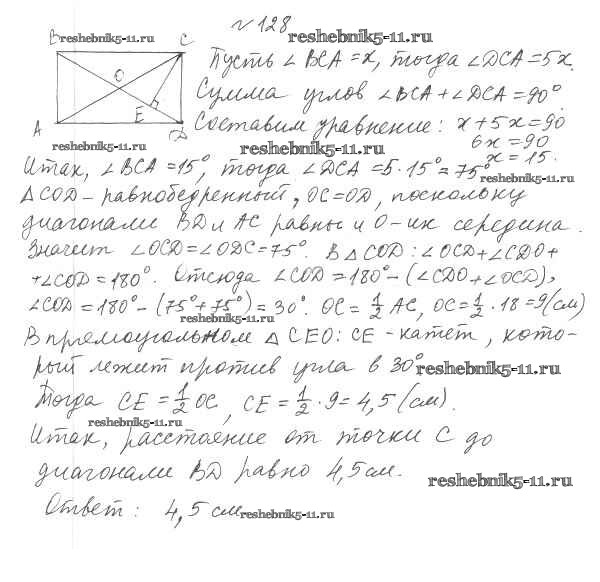 №128
reshebnik5-11.ru
B reshebnik5-11.ru C
Пусть ∠BCA = x, тогда ∠DCA = 5x.
O
Сумма углов ∠BCA + ∠DCA = 90°.
E
A D
Составим уравнение: x + 5x = 90
reshebnik5-11.ru
reshebnik5-11.ru
6x = 90
x = 15.
Итак, ∠BCA = 15°, тогда ∠DCA = 5·15° = 75°
reshebnik5-11.ru
△COD - равнобедренный, OC = OD, поскольку
диагонали BD и AC равны и O - их середина.
Значит ∠OCD = ∠ODC = 75°. В △COD: ∠OCD + ∠CDO +
+ ∠COD = 180°. Отсюда ∠COD = 180° - (∠CDO + ∠OCD),
∠COD = 180° - (75° + 75°) = 30°. OC = 1/2 AC, OC = 1/2 · 18 = 9 (см)
reshebnik5-11.ru
В прямоугольном △CEO: CE - катет, кото-
рый лежит против угла в 30°
reshebnik5-11.ru
Тогда CE = 1/2 OC, CE = 1/2 · 9 = 4,5 (см).
reshebnik5-11.ru
Итак, расстояние от точки C до
диагонали BD равно 4,5 см.
reshebnik5-11.ru
Ответ: 4,5 см
reshebnik5-11.ru